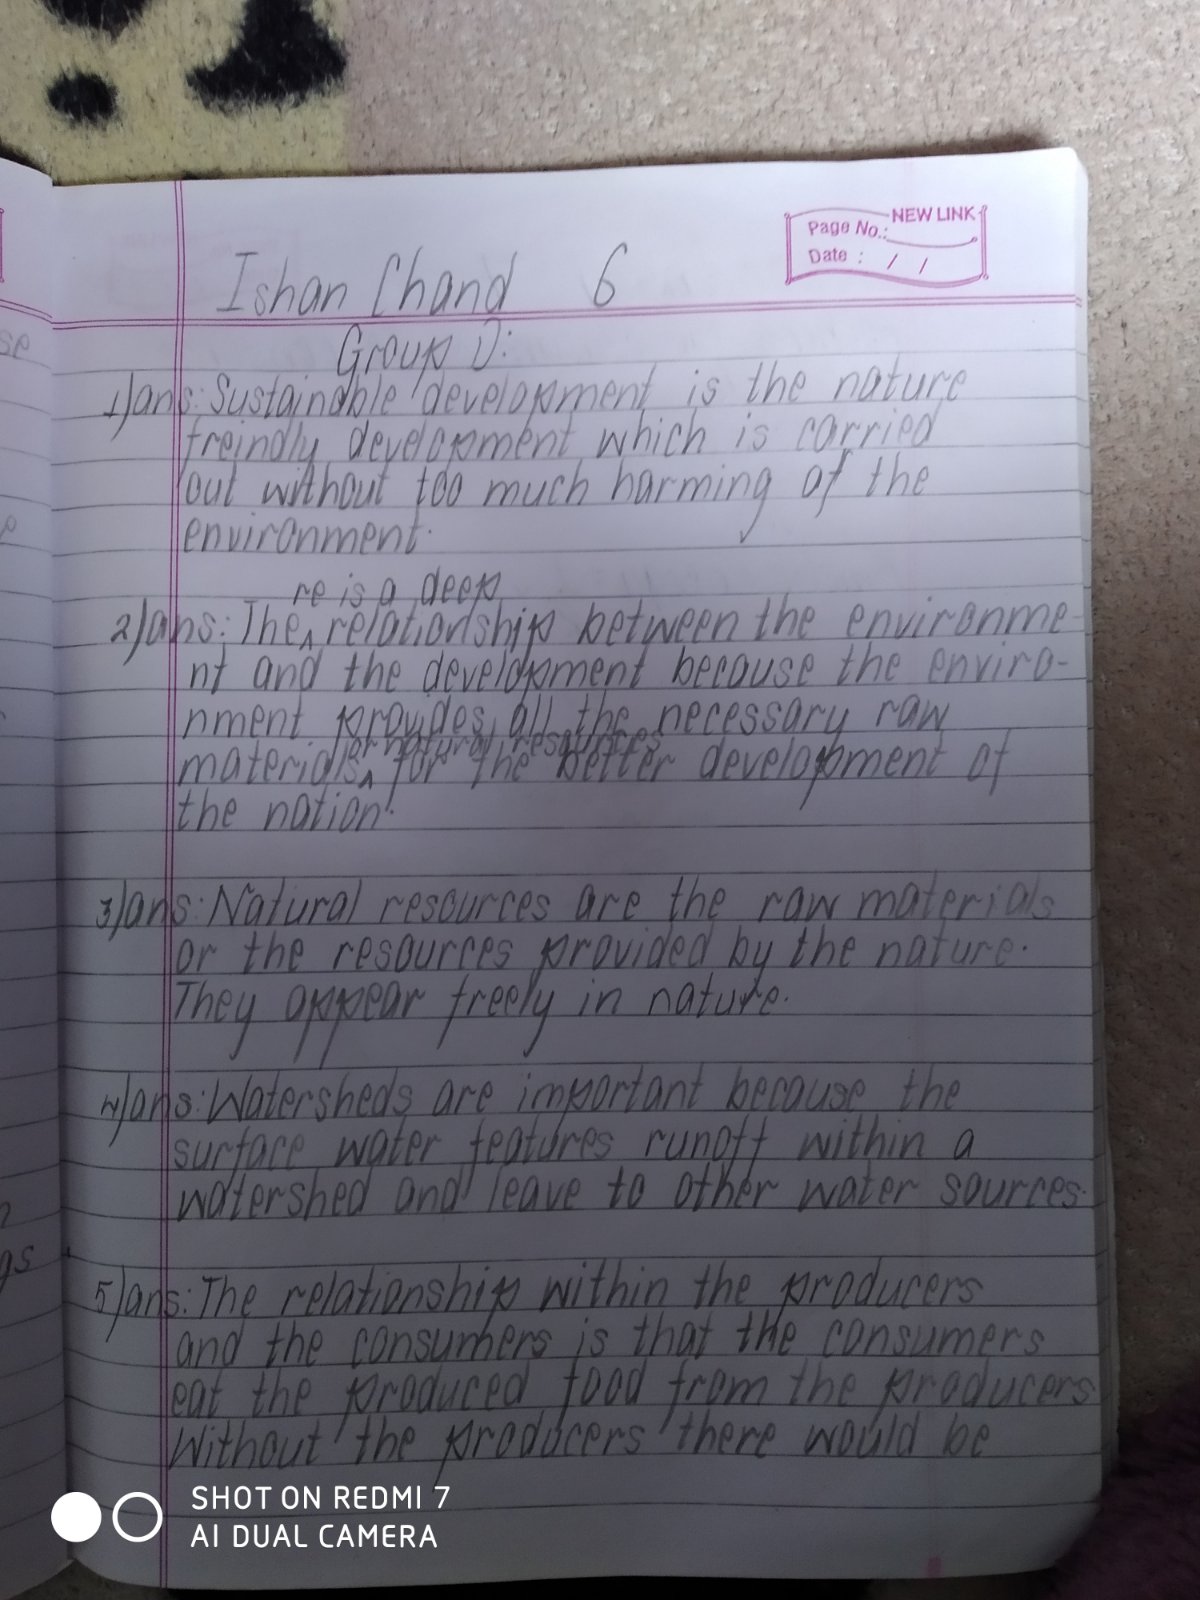 NEW LINK
Page No.:
Date : / /
Ishan Chand 6
Group D:
1) ans: Sustainable development is the nature
freindly development which is carried
out without too much harming of the
environment.
re is a deep
2) ans: The ^ relationship between the environme-
nt and the development because the enviro-
nment provides all the necessary raw
or natural resources
materials ^ for the better development of
the nation.
3) ans: Natural resources are the raw materials
or the resources provided by the nature.
They appear freely in nature.
4) ans: Watersheds are important because the
surface water features runoff within a
watershed and leave to other water sources.
5) ans: The relationship within the producers
and the consumers is that the consumers
eat the produced food from the producers
Without the producers there would be
se
gs
SHOT ON REDMI 7
AI DUAL CAMERA